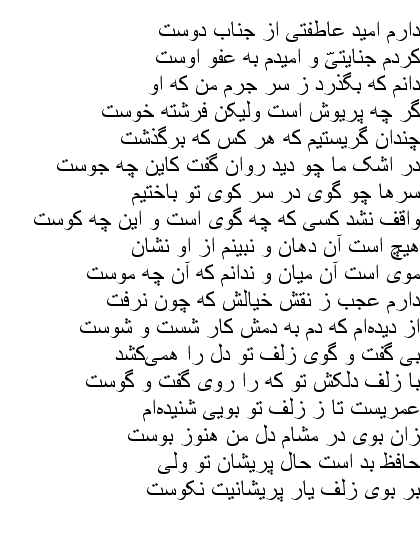 دارم امید عاطفتی از جناب دوست
کردم جنایتیّ و امیدم به عفو اوست
دانم که بگذرد ز سر جرم من که او
گر چه پریوش است ولیکن فرشته خوست
چندان گریستیم که هر کس که برگذشت
در اشک ما چو دید روان گفت کاین چه جوست
سرها چو گوی در سر کوی تو باختیم
واقف نشد کسی که چه گوی است و این چه کوست
هیچ است آن دهان و نبینم از او نشان
موی است آن میان و ندانم که آن چه موست
دارم عجب ز نقش خیالش که چون نرفت
از دیده‌ام که دم به دمش کار شست و شوست
بی گفت و گوی زلف تو دل را همی‌کشد
با زلف دلکش تو که را روی گفت و گوست
عمریست تا ز زلف تو بویی شنیده‌ام
زان بوی در مشام دل من هنوز بوست
حافظ بد است حال پریشان تو ولی
بر بوی زلف یار پریشانیت نکوست